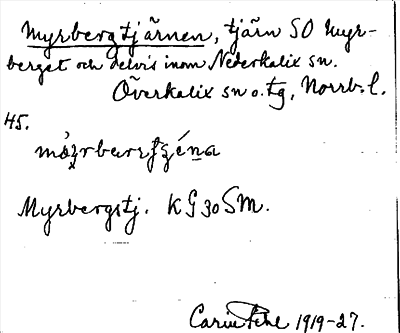 Myrbergtjärnen, tjärn SO Myr-
berget och delvis inom Nederkalix sn.
Överkalix sn o. tg, Norrb. l.
45.
Myrbergstj. KG 30 SM.
Carin Pihl 1919-27.